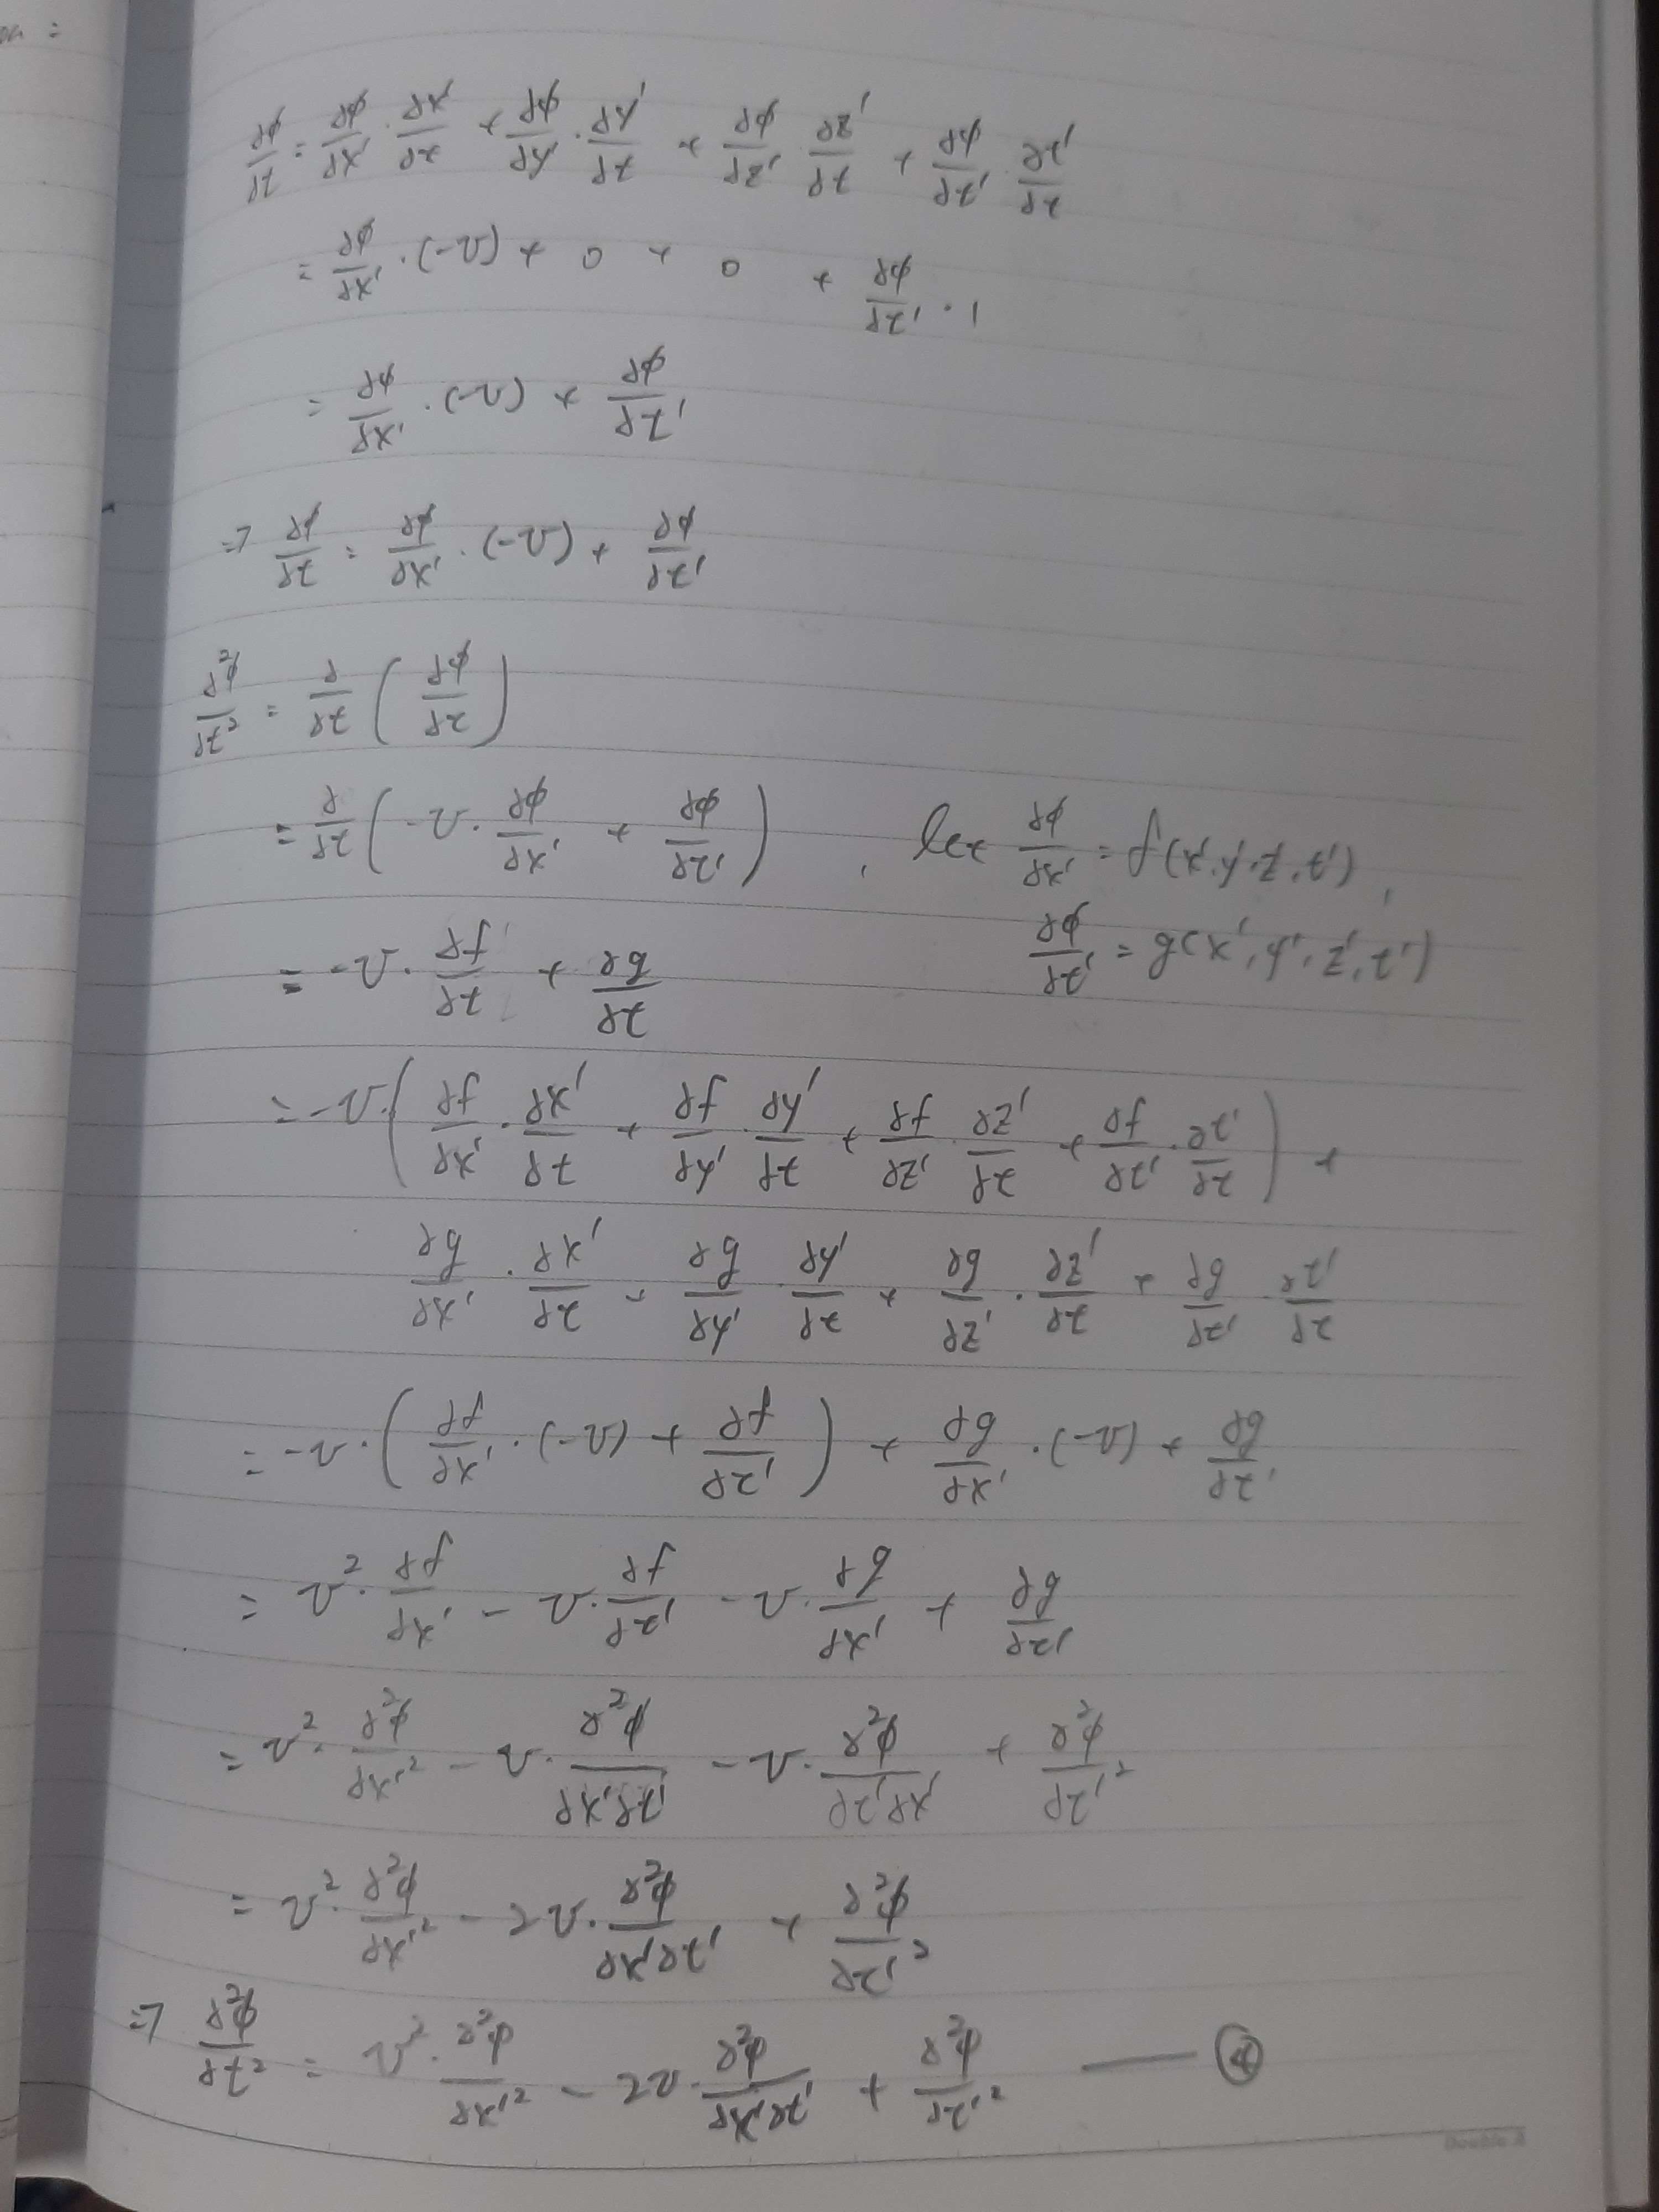 ∂φ/∂t = ∂φ/∂x' · ∂x'/∂t + ∂φ/∂y' · ∂y'/∂t + ∂φ/∂z' · ∂z'/∂t + ∂φ/∂t' · ∂t'/∂t
= ∂φ/∂x' · (-v) + 0 + 0 + ∂φ/∂t' · 1
= ∂φ/∂x' · (-v) + ∂φ/∂t'
=> ∂φ/∂t = ∂φ/∂x' · (-v) + ∂φ/∂t'
∂²φ/∂t² = ∂/∂t (∂φ/∂t)
= ∂/∂t (-v · ∂φ/∂x' + ∂φ/∂t') , let ∂φ/∂x' = f(x', y', z', t') ,
∂φ/∂t' = g(x', y', z', t')
= -v · ∂f/∂t + ∂g/∂t
= -v · (∂f/∂x' · ∂x'/∂t + ∂f/∂y' · ∂y'/∂t + ∂f/∂z' · ∂z'/∂t + ∂f/∂t' · ∂t'/∂t) +
∂g/∂x' · ∂x'/∂t + ∂g/∂y' · ∂y'/∂t + ∂g/∂z' · ∂z'/∂t + ∂g/∂t' · ∂t'/∂t
= -v · (∂f/∂x' · (-v) + ∂f/∂t') + ∂g/∂x' · (-v) + ∂g/∂t'
= v² · ∂f/∂x' - v · ∂f/∂t' - v · ∂g/∂x' + ∂g/∂t'
= v² · ∂²φ/∂x'² - v · ∂²φ/∂x'∂t' - v · ∂²φ/∂t'∂x' + ∂²φ/∂t'²
= v² · ∂²φ/∂x'² - 2v · ∂²φ/∂x'∂t' + ∂²φ/∂t'²
=> ∂²φ/∂t² = v² · ∂²φ/∂x'² - 2v · ∂²φ/∂x'∂t' + ∂²φ/∂t'² —— ④
Double A